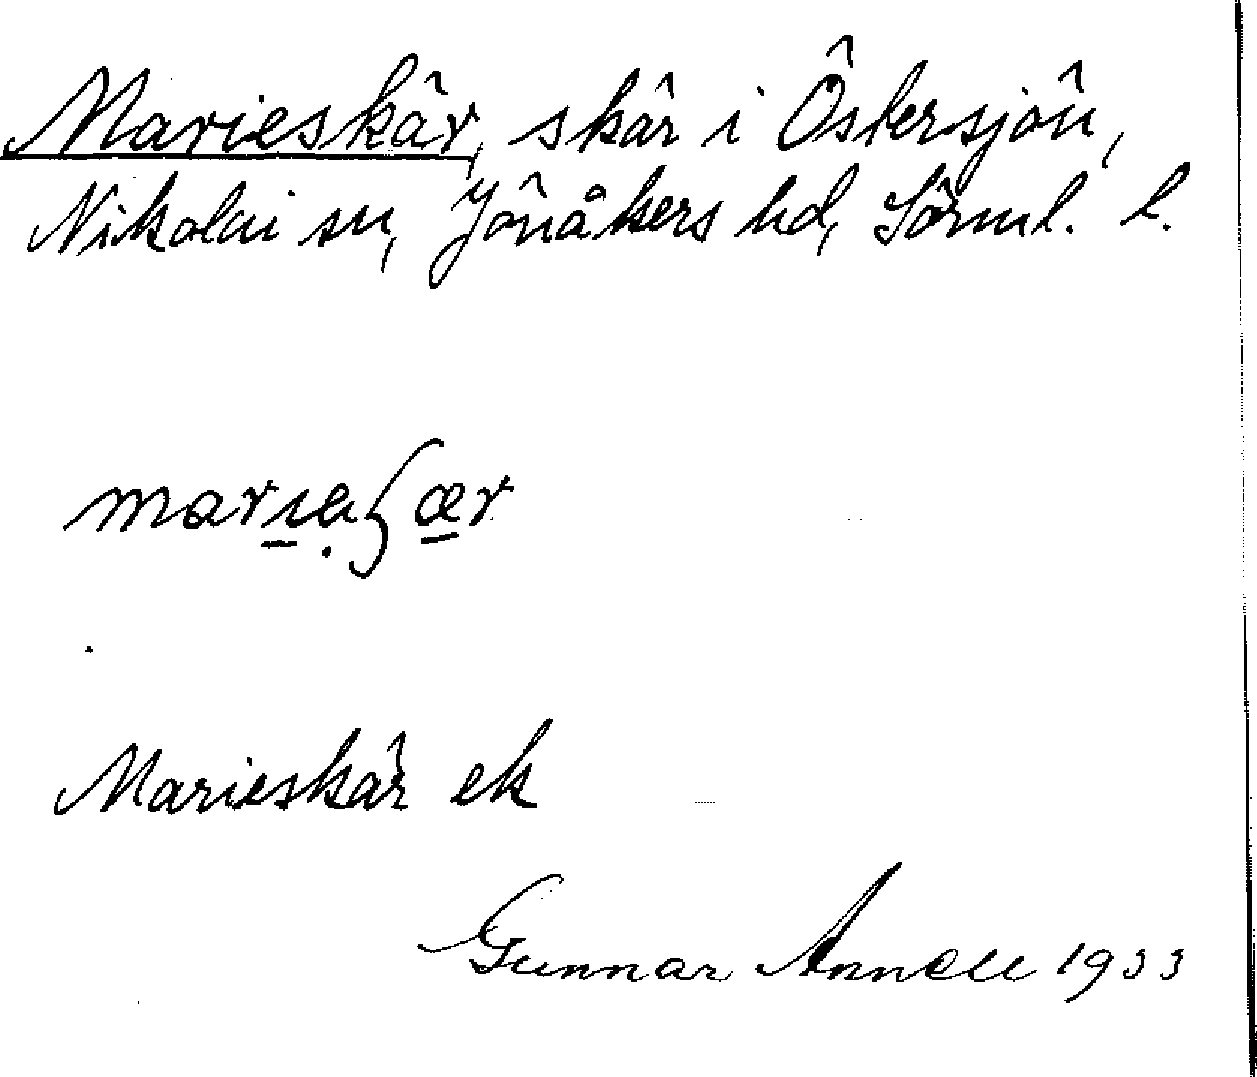 Marieskär, skär i Östersjön,
Nikolai sn, Jönåkers hd, Sörml. l.
Marieskär ek
Gunnar Annell 1933